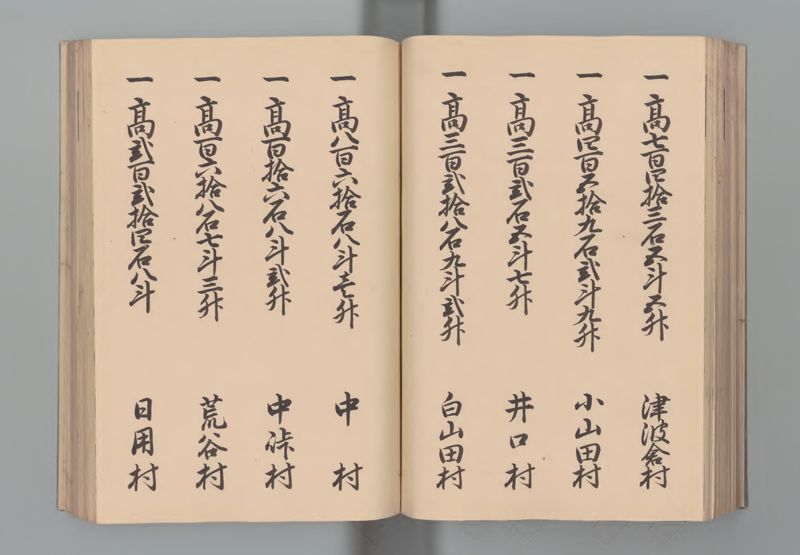 一高七百四拾三石五斗五升 津波倉村
一高四百五拾九石弐斗九升 小山田村
一高三百弐石五斗七升 井口村
一高三百弐拾八石九斗弐升 白山田村
一高八百六拾石八斗壱升 中村
一高百拾六石八斗弐升 中峠村
一高百六拾八石七斗三升 荒谷村
一高弐百弐拾四石八斗 日用村